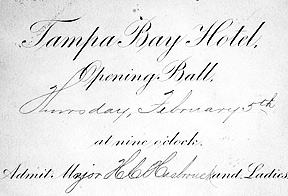 Tampa Bay Hotel,
Opening Ball,
Thursday, February 5th
at nine o'clock.
Admit Major H C Hasbrouck and Ladies